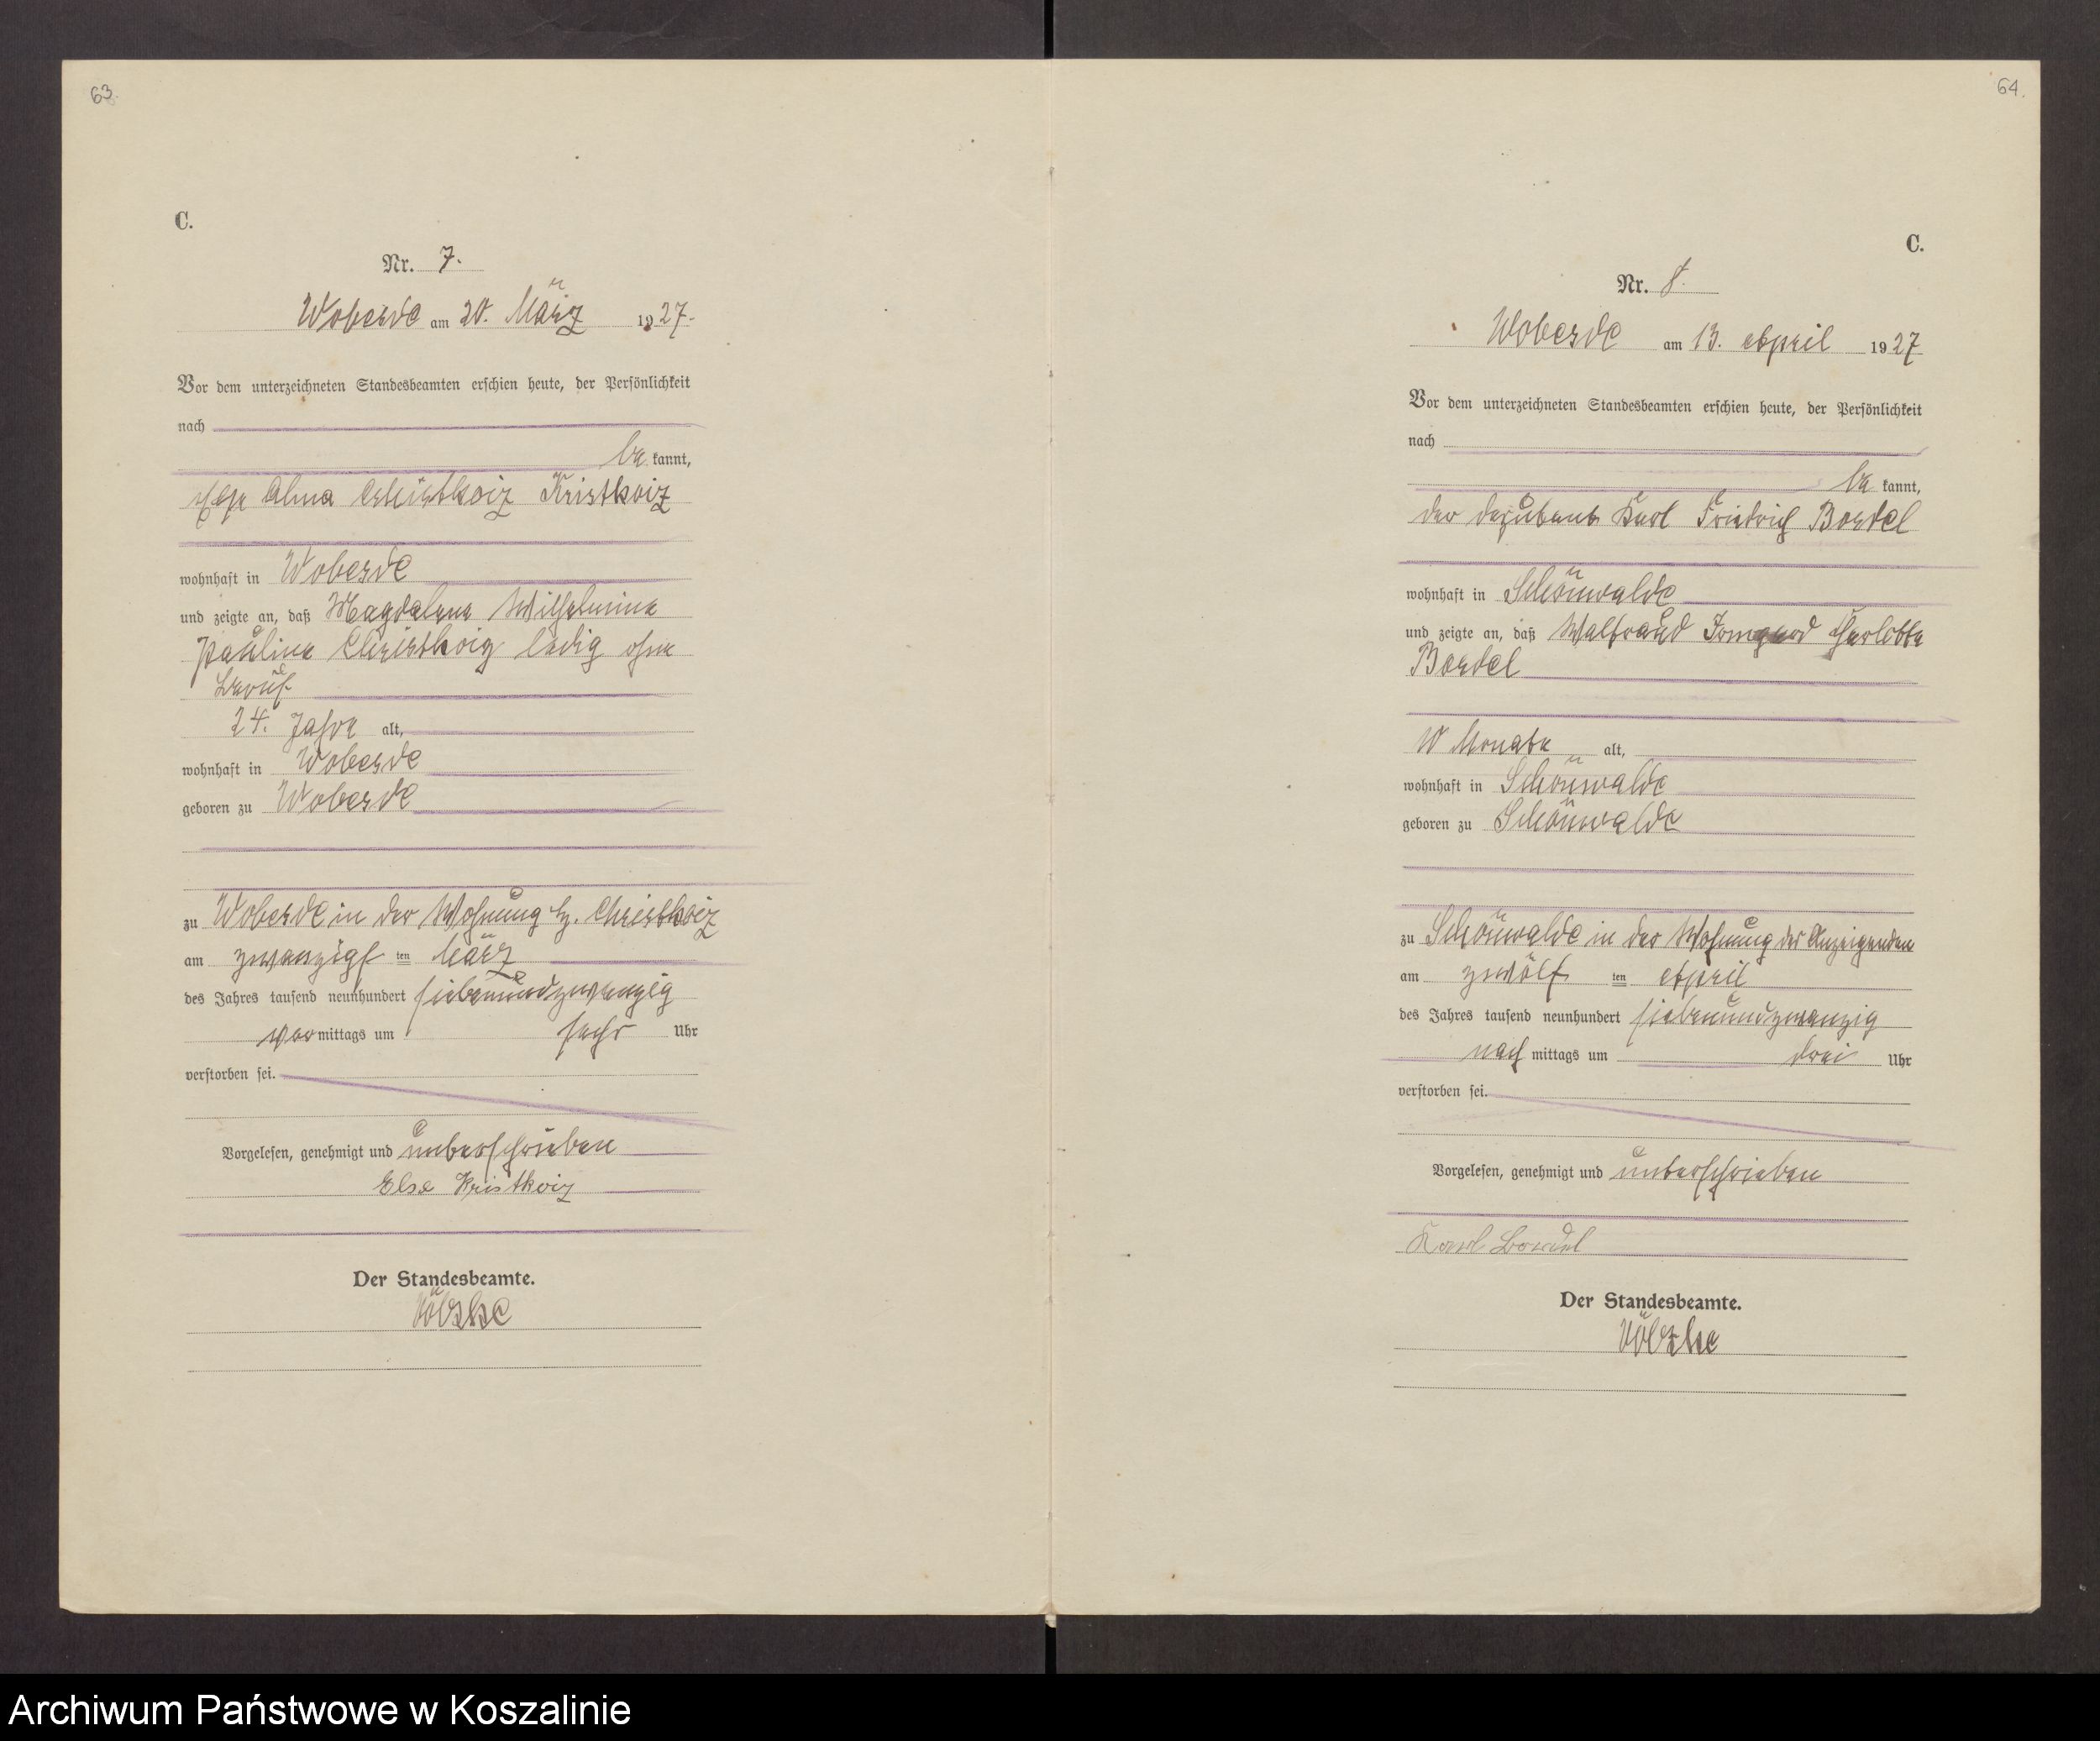 63.
C.
Nr. 7.
Woberde am 20. März 1927.
Vor dem unterzeichneten Standesbeamten erschien heute, der Persönlichkeit
nach
be kannt,
Alma Christkoiz Kristkoiz
wohnhaft in Woberde
und zeigte an, daß Magdalene Wilhelmine
Pauline Christkoiz ledig ohne
Beruf
24. Jahre alt,
wohnhaft in Woberde
geboren zu Woberde
zu Woberde in der Wohnung Christkoiz
am zwanzigs ten März
des Jahres tausend neunhundert siebenundzwanzig
vor mittags um sechs Uhr
verstorben sei.
Vorgelesen, genehmigt und unterschrieben
Else Kristkoiz
Der Standesbeamte.
Völzke
64.
C.
Nr. 8.
Woberde am 13. April 1927
Vor dem unterzeichneten Standesbeamten erschien heute, der Persönlichkeit
nach
be kannt,
der Karl Friedrich Bordel
wohnhaft in Schönwalde
und zeigte an, daß Waltraud Irmgard Charlotte
Bordel
Monate alt,
wohnhaft in Schönwalde
geboren zu Schönwalde
zu Schönwalde in der Wohnung des Anzeigenden
am zwölf ten April
des Jahres tausend neunhundert siebenundzwanzig
nach mittags um drei Uhr
verstorben sei.
Vorgelesen, genehmigt und unterschrieben
Karl Bordel
Der Standesbeamte.
Völzke
Archiwum Państwowe w Koszalinie